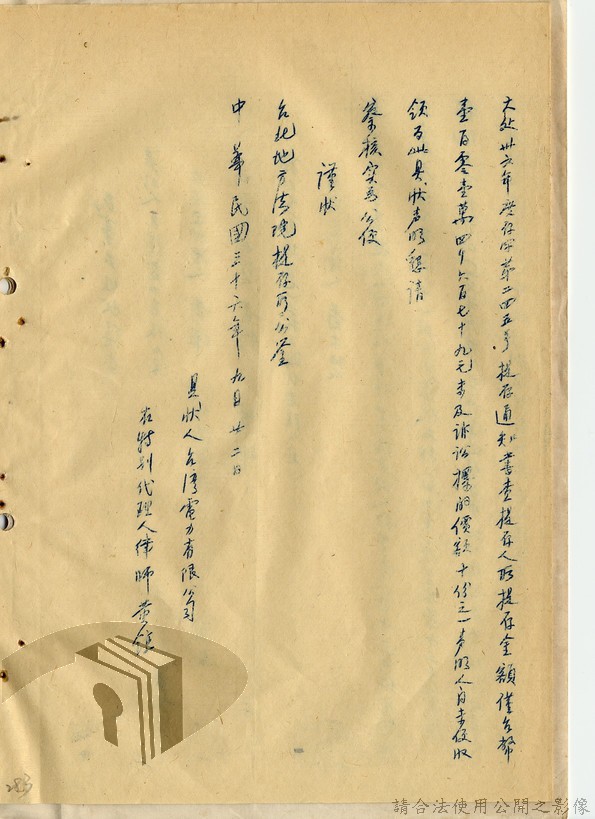 大處卅六年度存字第二四五号提存通知書查提存人所提存金額僅台幣
壹百零壹萬四千六百七十九元未及訴訟標的價額十份之一声明人自未便收
領为此具狀声明懇請
察核实为公便
謹狀
台北地方法院提存所公鑒
中華民國三十六年九月廿二日
具狀人台湾電力有限公司
右特别代理人律師黄
283
請合法使用公開之影像